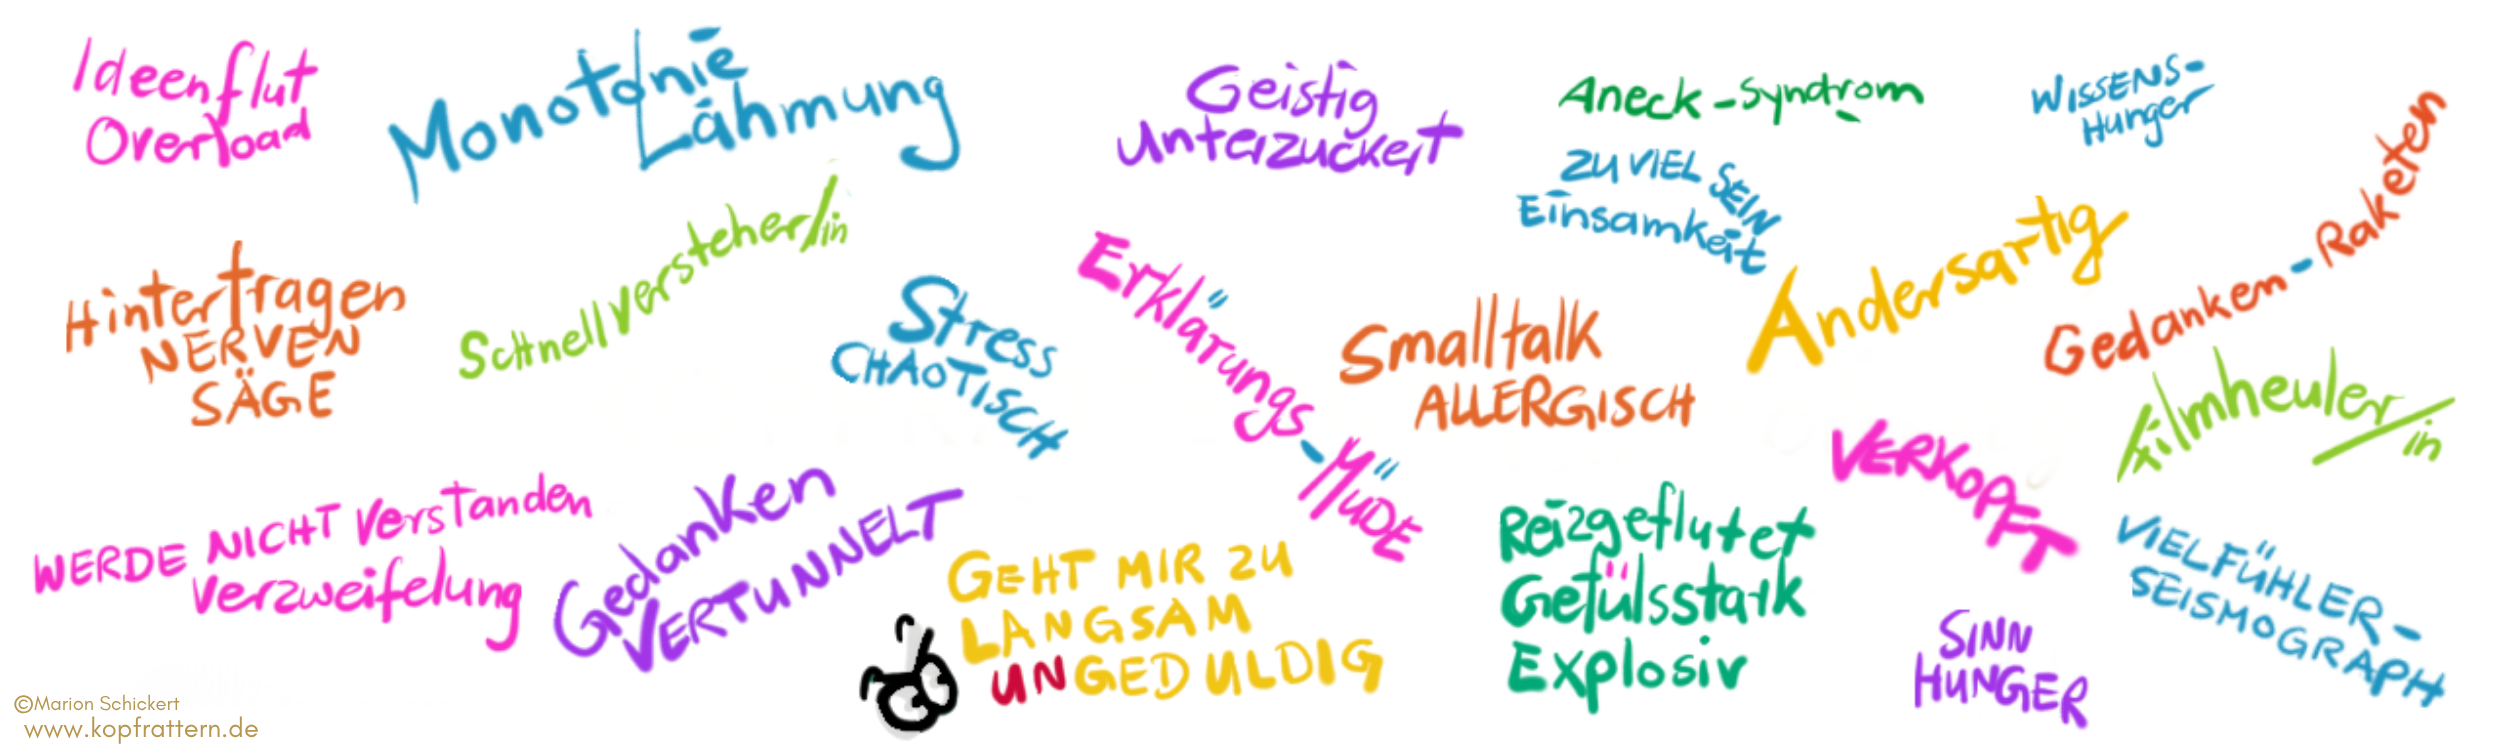 Ideenflut
Overload
Monotonie
Lähmung
Geistig
unterzuckert
Aneck-syndrom
WISSENS-
Hunger
ZU VIEL SEIN
Einsamkeit
Andersartig
Gedanken-Raketen
Hinterfragen
NERVEN
SÄGE
Schnellversteher/in
Stress
CHAOTISCH
Erklärungs-MÜDE
Smalltalk
ALLERGISCH
Filmheuler/in
VERKOPFT
WERDE NICHT Verstanden
Verzweifelung
Gedanken
VERTUNNELT
GEHT MIR ZU
LANGSAM
UNGEDULDIG
Reizgeflutet
Gefülsstark
Explosiv
VIELFÜHLER-
SEISMOGRAPH
SINN
HUNGER
©Marion Schickert
www.kopfrattern.de